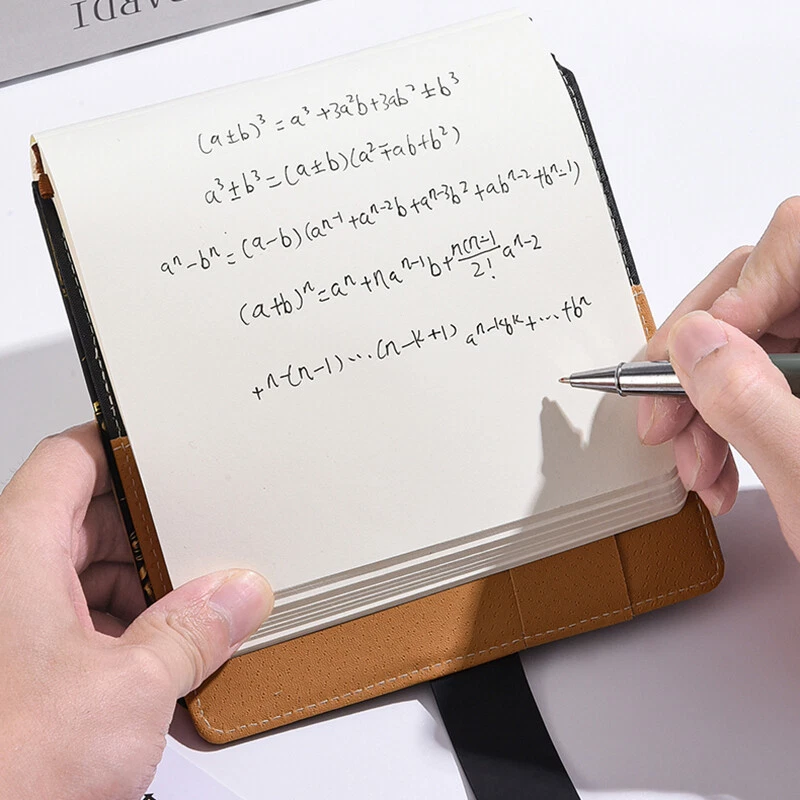 IDARDI
(a±b)³ = a³+3a²b+3ab²±b³
a³±b³=(a±b)(a²∓ab+b²)
aⁿ-bⁿ=(a-b)(aⁿ⁻¹+aⁿ⁻²b+aⁿ⁻³b²+abⁿ⁻²+bⁿ⁼¹)
(a+b)ⁿ=aⁿ+naⁿ⁻¹b+n(n-1/2!aⁿ⁻²
+n-(n-1)...(n-k+1) aⁿ⁻ᵏbᵏ+...+bⁿ